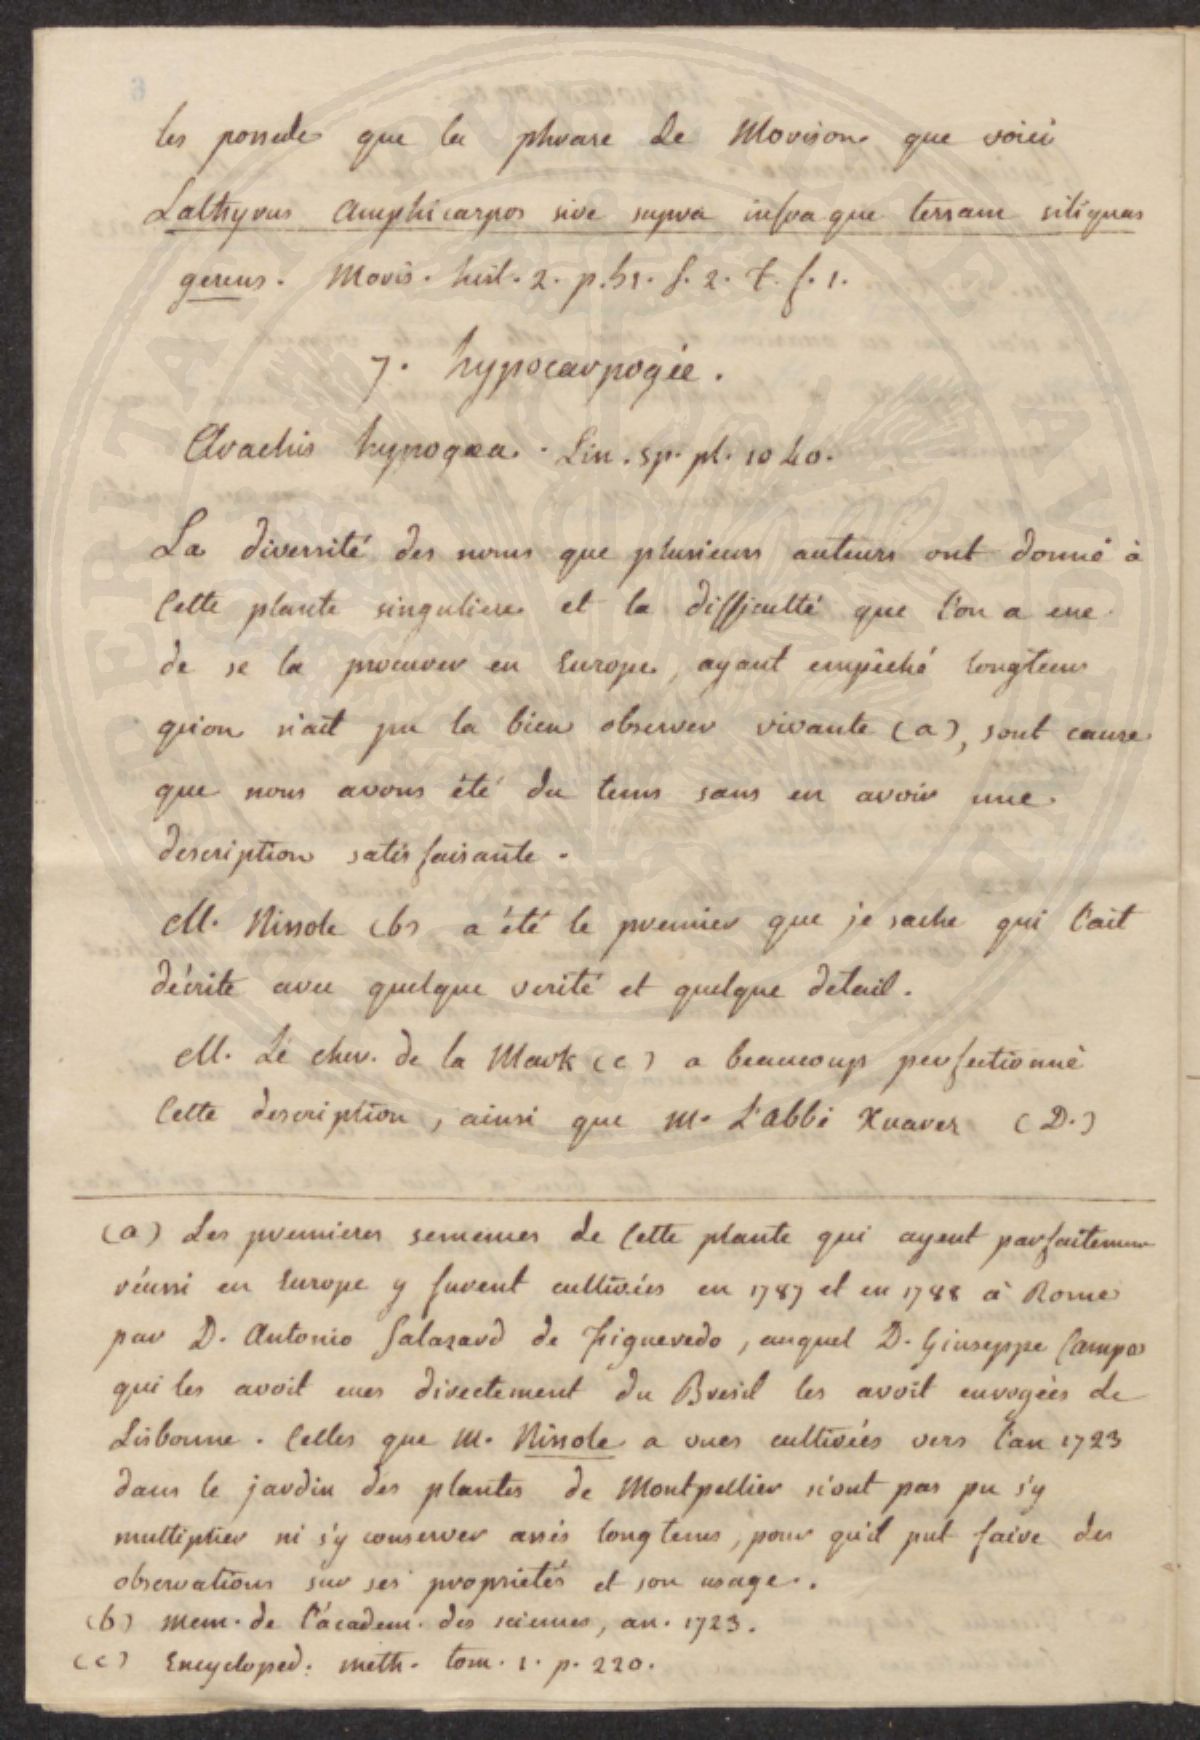 les possede que la phrase de Morison que voici
Lathyrus Amphicarpos sive supra infra que terram siliquas
gerens. Moris. hist. 2. p. 51. s. 2. t. f. 1.
7. hypocarpogée.
Arachis hypogæa. Lin. sp. pl. 1040.
La diversité des noms que plusieurs auteurs ont donné à
Cette plante singuliere et la difficulté que l'on a eue
de se la procurer en Europe, ayant empêché longtems
qu'on n'ait pu la bien observer vivante (a), sont cause
que nous avons été du tems sans en avoir une
description satisfaisante.
M. Nissole (b) a été le premier que je sache qui l'ait
décrite avec quelque verité et quelque detail.
M. Le chev. de la Mark (c) a beaucoup perfectionné
Cette description, ainsi que M. L'abbé Xuarez (D.)
(a) Les premieres semences de Cette plante qui ayent parfaitement
réussi en Europe y furent cultivées en 1787 et en 1788 à Rome
par D. Antonio Salazard de Figueredo, auquel D. Giuseppe Campos
qui les avoit eues directement du Bresil les avoit envoyées de
Lisbonne. Celles que M. Nissole a vues cultivées vers l'an 1723
dans le jardin des plantes de Montpellier n'ont pas pu s'y
multiplier ni s'y conserver assés longtems, pour qu'il put faire des
observations sur ses proprietés et son usage.
(b) Mem. de l'academ. des sciences, an. 1723.
(c) Encycloped. meth. tom. 1. p. 220.